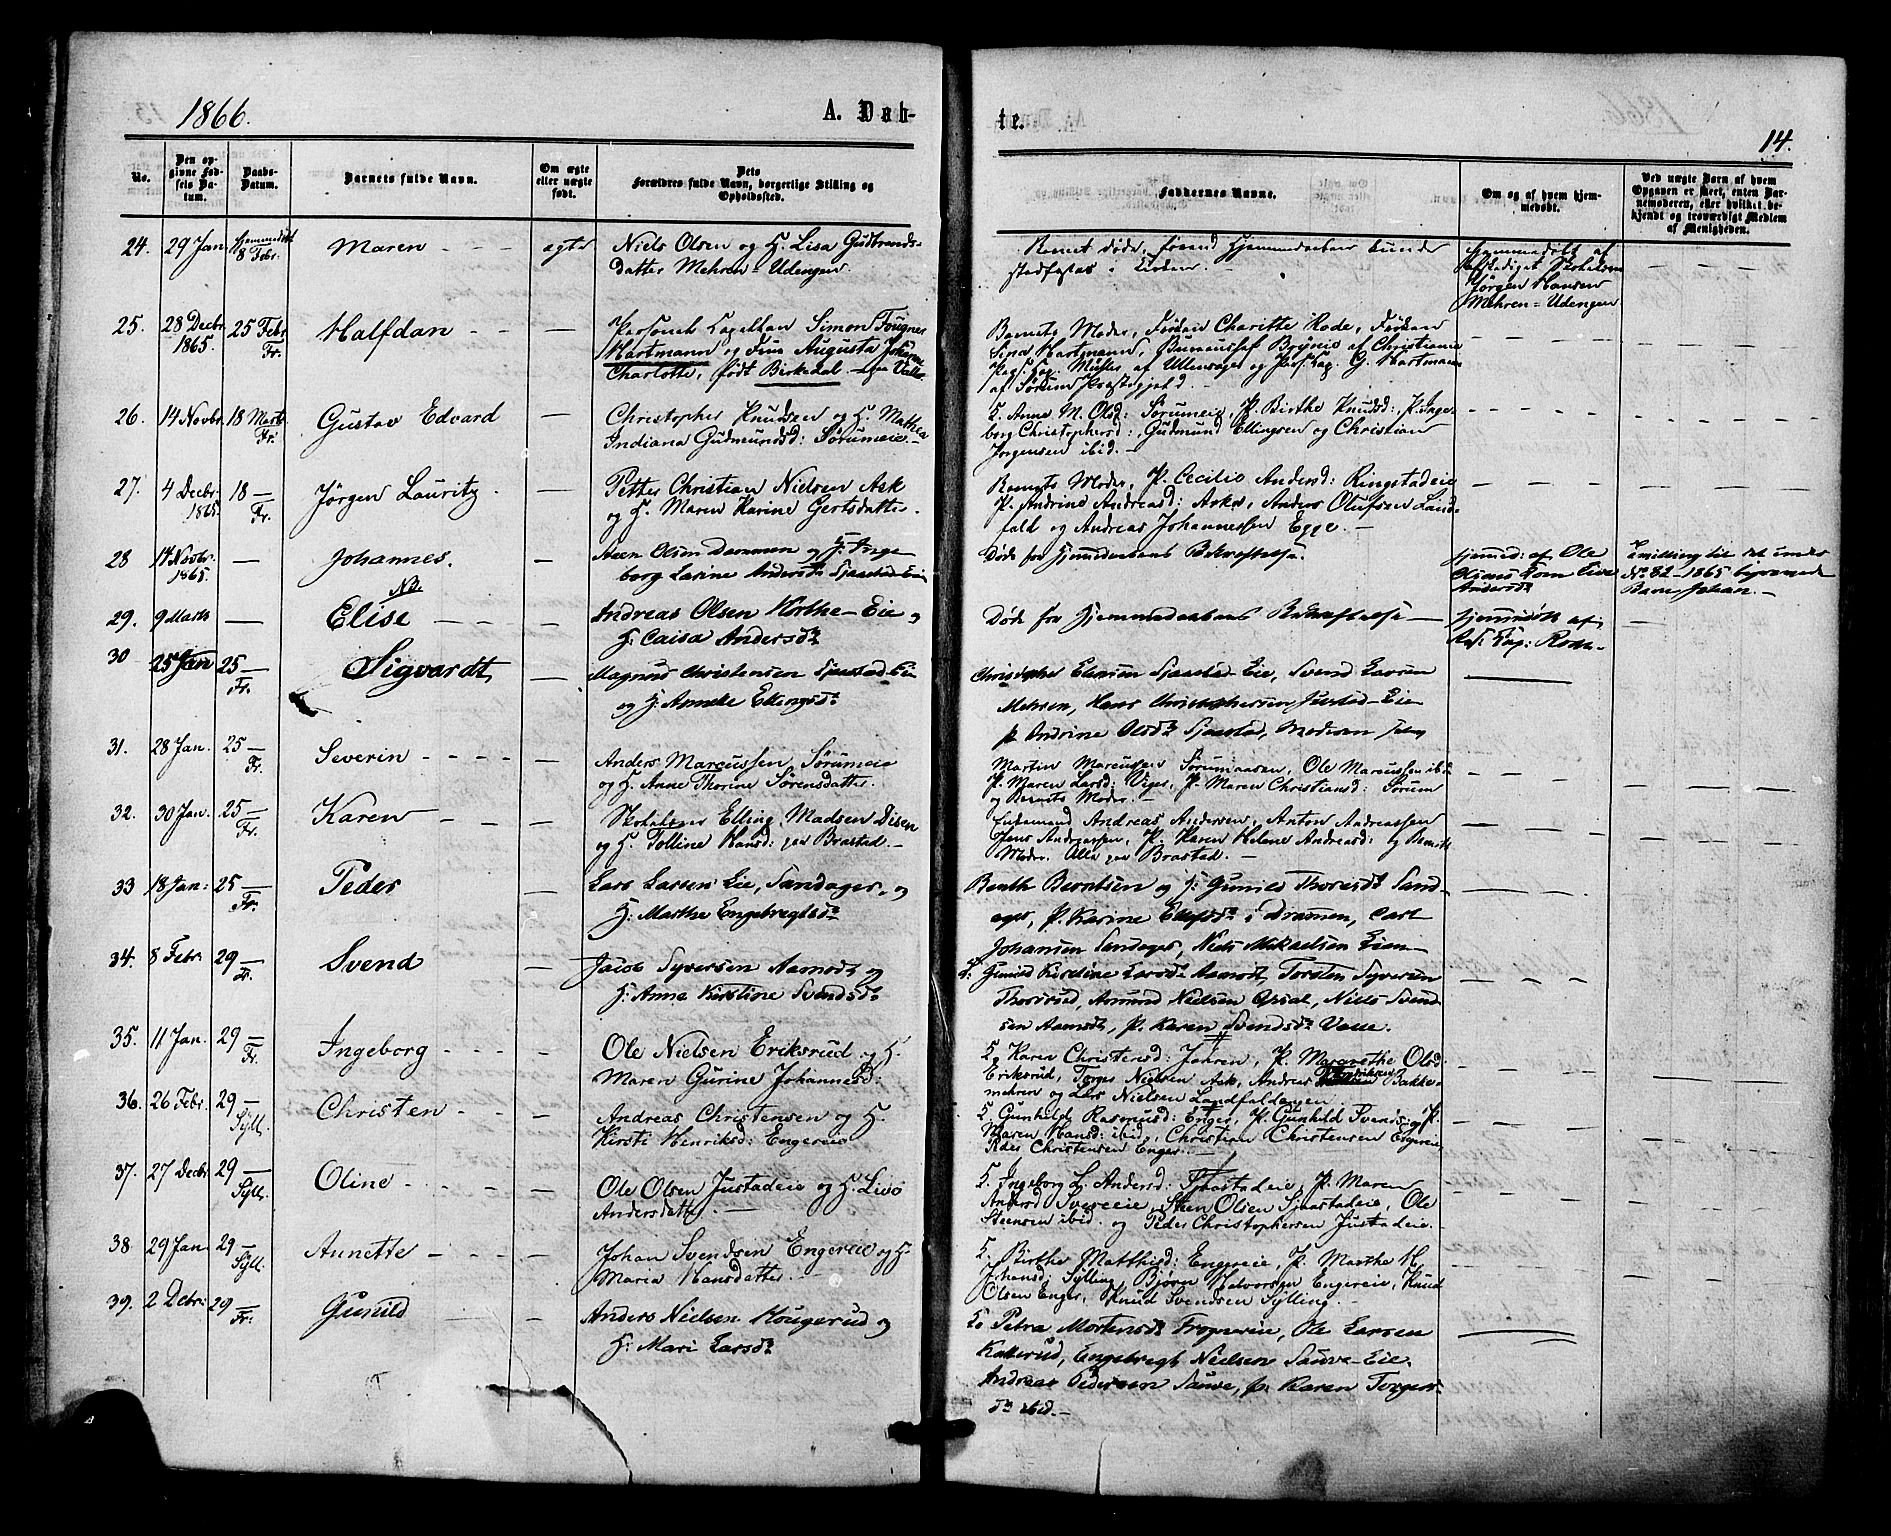 1866.
A. Døb-
te.
14.
No.
Den op-
givne Fød-
sels Da-
tum.
Daabs-
Datum.
Barnets fulde Navn.
Om ægte
eller uægte
født.
Dets
Forældres fulde Navn, borgerlige Stilling og
Opholdssted.
Faddernes Navne.
Om og af hvem hjem-
medøbt.
Ved uægte Børn af hvem
Opgaven er skeet, enten Bar-
nemoderen, eller hvilket be-
kjendt og troværdigt Medlem
af Menigheden.
24. 29 Jan hjemmedøbt 8 Febr. Maren - - - ægte
Niels Olsen og H. Lisa Gudbrands-
datter Mehren-Udengen
Barnet døde, førend Hjemmedaaben kunde
stadfæstes i Kirken. -
Hjemmedøbt af
Jørgen Hansen
Mehren-Udengen
25. 28 Decbr 1865. 25 Febr Fr. Halfdan - - -
Personel Capellan Simon Fougner
Hartmann og Frue Augusta Johanne
Charlotte, født Birkedal
Barnets Moder, Frøken Charitte Rode, Frøken
Hartmann, af Christiania
Pers. Cap. af Ullensager og Pers. Cap. G. Hartmann
af Sørum Præstegjeld. -
26. 14 Novbr. 18 Marts Fr. Gustav Edvard -
Christopher Knudsen og H. Mathea
Indiana Gudmundsd: Sørumeie. -
K. Anne M. Olsd: Sørumeie, P. Birthe Knudsd: P. Inge-
borg Christophersd: Gudmund Ellingsen og Christian
Jørgensen ibid. -
27. 4 Decbr. 1865. 18 - Fr. Jørgen Lauritz. -
Petter Christian Nielsen Ask
og H. Maren Karine Gertsdatter.
Barnets Moder, P. Cecilie Andersd: Ringstadeie
P. Andrine Andreasd: Asker, Anders Olufsen Land-
fald og Andreas Johannessen Egge. -
28 14 Novbr. 1865. - Johannes. -
Olsen og H: Inge
borg Larine Andersdr Sjaastad-Eie
Døde før Hjemmedaabens Bekræftelse.
hjemmed: af Ole
Andersdr
No 82 - 1865
Barn Johan. -
NB.
29. 9 Marts - Elise - - -
Andreas Olsen Horthe-Eie og
H: Caisa Andersdr
Døde før Hjemmedaabens Bekræftelse -
hjemmedøbt af
Res: Cap: Rode -
30 25 Jan 25 - Fr. Sigvardt -
Magnus Christensen Sjaastad-Eie
og H: Anneke Ellingsdr
Christopher Sjaastad-Eie, Svend Larsen
Mehren, Hans Christophersen Justad-Eie
p. Andrine Olsdr Sjaastad, Moderen selv
31. 28 Jan. 25 - Fr. Severin - - -
Anders Marcussen Sørumeie
og H. Anne Thorine Sørensdatter.
Martin Marcussen Sørumaasen, Ole Marcussen ibid
P. Maren Larsd: Viger, P. Maren Christiansd: Sørum
og Barnets Moder. -
32. 30 Jan. 25 - Fr. Karen - - -
Skoleholder Elling Madsen Disen
og H. Tolline Hansd: paa Brastad. -
Enkemand Andreas Andersen, Anton Andreassen
Jens Andreassen, P. Karen Helene Andreasd: og Barnets
Moder. Alle paa Brastad. -
33 18 Jan: 25 - Fr. Peder -
Lars Larsen Eie, Sandager, og
H: Marthe Engebregtsdr
Benth Berntsen og H: Gunild Thoresdr Sand-
ager, p. Karine i Dramen, Carl
Johansen Sandager, Niels Mikaelsen Eien -
34. 8 Febr. 29 - Fr. Svend -
Jacob Syversen Aamodt og
H: Anne Kirstine Svendsdr
H: Gunild Kirstine Larsdr Aamodt, Torsten Syversen
Thorsrud, Amund Nielsen Opsal, Niels Svend-
sen Aamodt, p. Karen Svendsdr
35. 11 Jan. 29 - Fr. Ingeborg - - -
Ole Nielsen Eriksrud og H.
Maren Gurine Johannesd:
K. Karen Christensd: Jahren, P. Margrethe Olsd.
Eriksrud, Torger Nielsen Ask, Andreas Bakke-
mehren og Lars Nielsen Landfaldengen.
36. 26 Febr. 29 - Syll. Christen - - -
Andreas Christensen og H.
Kirsti Henriksd: Engereie
K. Gunhild Rasmusd: Enger, P. Gunhild Svendsd: P.
Maren Hansd: ibid, Christian Christensen Engereie
Peder Christensen Enger. -
37. 27 Decbr 29 - Syll. Oline - - -
Ole Olsen Justadeie og H. Live
Andersdatter. -
K. Ingeborg L. Andersd: Sjaastadeie, P. Maren
Andersd Svereeie, Steen Olsen Sjaastadeie, Ole
Steensen ibid. og Peder Christophersen Justadeie. -
38. 29 Jan 29 - Syll. Annette - - -
Johan Svendsen Engereie og H.
Maria Hansdatter. -
K. Birthe Matthisd: Engereie, P. Marthe H.
Johansd: Sylling, Bjørn Halvorsen Engereie, Knud
Olsen Enger, Knud Svendsen Sylling. -
39. 2 Decbr: 29 - Fr. Gunild -
Anders Nielsen Hougerud og
H: Mari Larsdr
K. Petra Mortensdr Frognereie, Ole Larsen
Katterud, Engebregt Nielsen Sauve-Eie.
Andreas Pedersen Sauve, p. Karen Torgers-
dr ibid. -